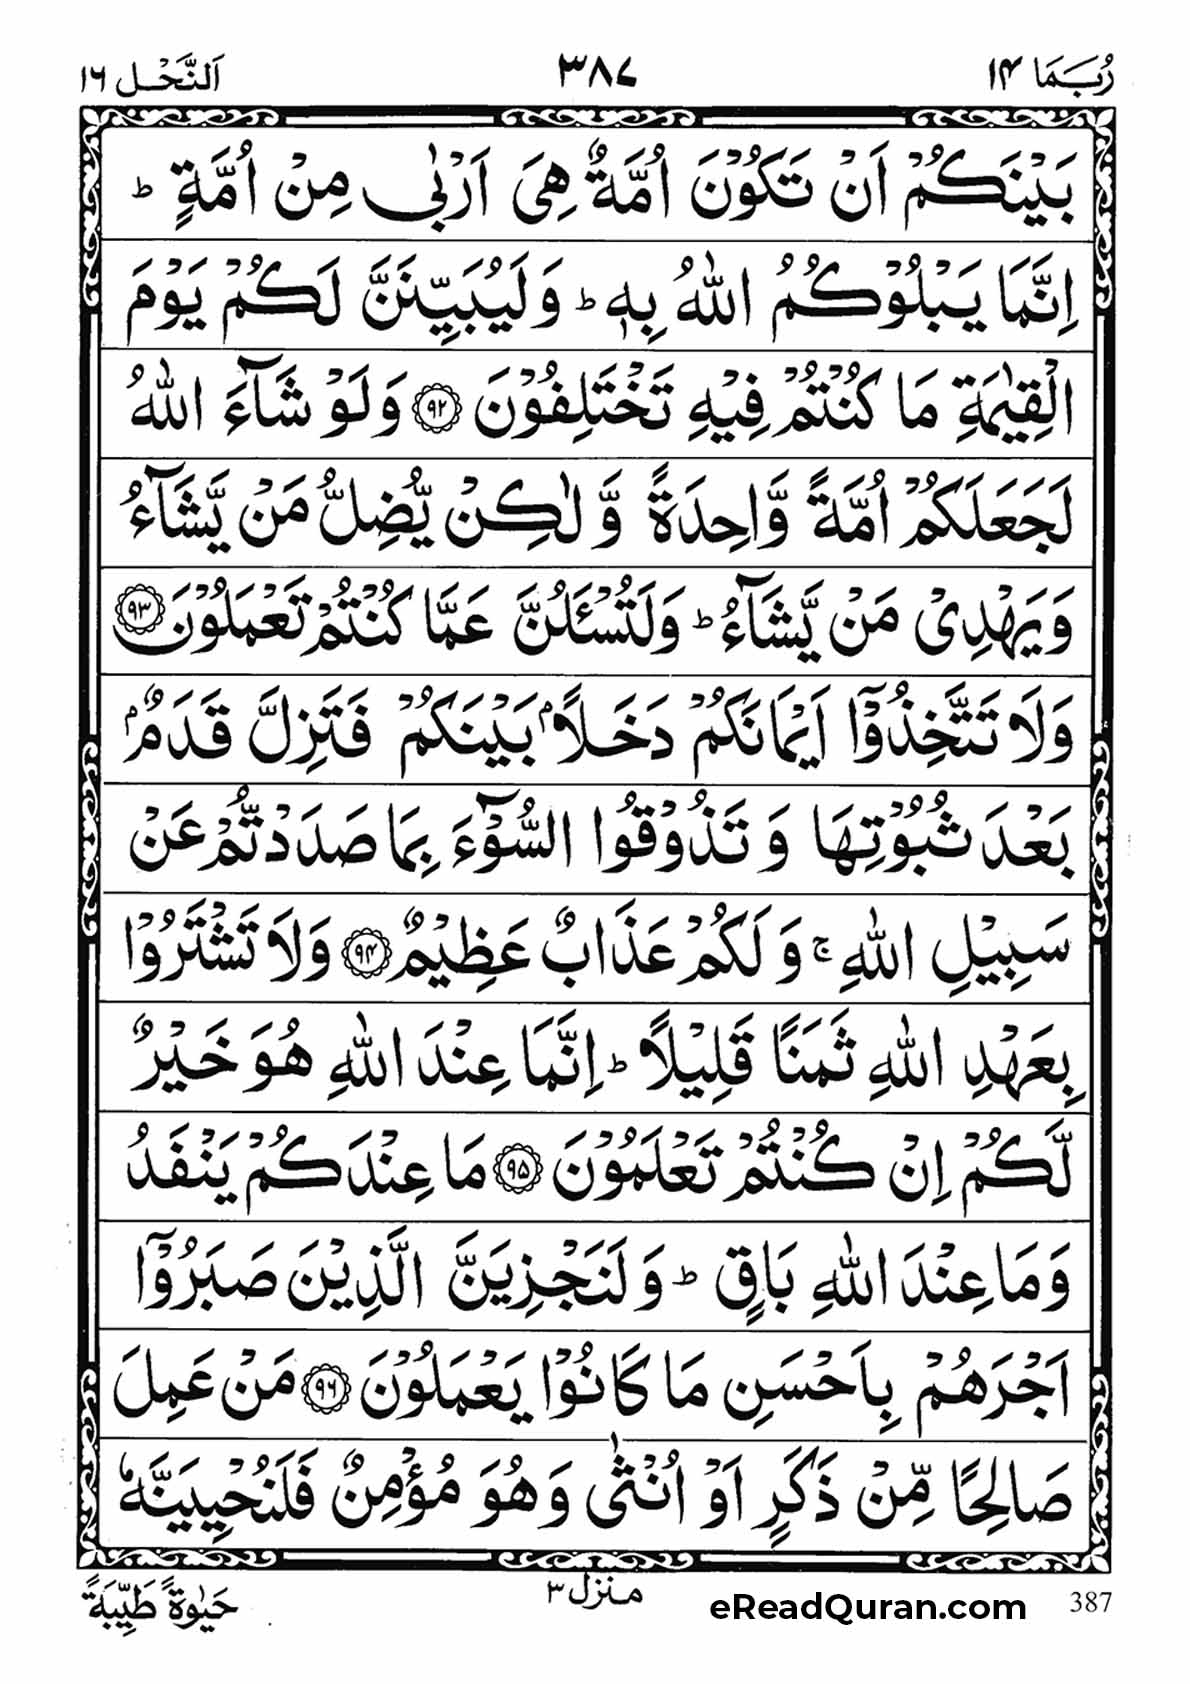 رُبَمَا ١٤
٣٨٧
اَلنَّحْل ١٦
بَيْنَكُمْ اَنْ تَكُوْنَ اُمَّةٌ هِیَ اَرْبٰی مِنْ اُمَّةٍ ؕ
اِنَّمَا يَبْلُوْكُمُ اللّٰهُ بِهٖ ؕ وَلَيُبَيِّنَنَّ لَكُمْ يَوْمَ
الْقِيٰمَةِ مَا كُنْتُمْ فِيْهِ تَخْتَلِفُوْنَ ﴿۹۲﴾ وَلَوْ شَآءَ اللّٰهُ
لَجَعَلَكُمْ اُمَّةً وَّاحِدَةً وَّلٰكِنْ يُّضِلُّ مَنْ يَّشَآءُ
وَيَهْدِیْ مَنْ يَّشَآءُ ؕ وَلَتُسْـَٔلُنَّ عَمَّا كُنْتُمْ تَعْمَلُوْنَ ﴿۹۳﴾
وَلَا تَتَّخِذُوْۤا اَيْمَانَكُمْ دَخَلًاۢ بَيْنَكُمْ فَتَزِلَّ قَدَمٌۢ
بَعْدَ ثُبُوْتِهَا وَتَذُوْقُوا السُّوْٓءَ بِمَا صَدَدْتُّمْ عَنْ
سَبِيْلِ اللّٰهِ ۚ وَلَكُمْ عَذَابٌ عَظِيْمٌ ﴿۹۴﴾ وَلَا تَشْتَرُوْا
بِعَهْدِ اللّٰهِ ثَمَنًا قَلِيْلًا ؕ اِنَّمَا عِنْدَ اللّٰهِ هُوَ خَيْرٌ
لَّكُمْ اِنْ كُنْتُمْ تَعْلَمُوْنَ ﴿۹۵﴾ مَا عِنْدَكُمْ يَنْفَدُ
وَمَا عِنْدَ اللّٰهِ بَاقٍ ؕ وَلَنَجْزِيَنَّ الَّذِيْنَ صَبَرُوْۤا
اَجْرَهُمْ بِاَحْسَنِ مَا كَانُوْا يَعْمَلُوْنَ ﴿۹۶﴾ مَنْ عَمِلَ
صَالِحًا مِّنْ ذَكَرٍ اَوْ اُنْثٰی وَهُوَ مُؤْمِنٌ فَلَنُحْيِيَنَّهٗ
387
eReadQuran.com
منزل ٣
حَيٰوةً طَيِّبَةً